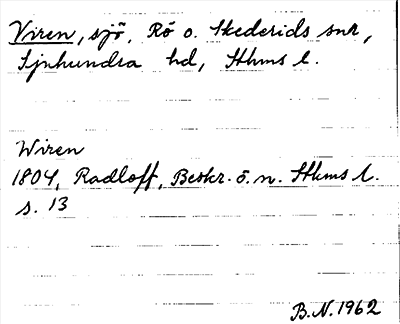 Viren, sjö, Rö o. Skederids snr,
Sjuhundra hd, Sthms l.
Wiren
1804, Radloff, Beskr. ö. n. Sthms l.
s. 13
B.N. 1962